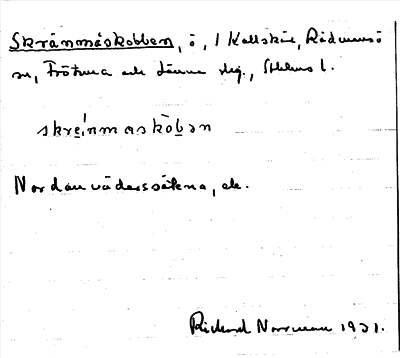 Skränmåskobben, ö, i Kallskär, Rådmansö
sn, Frötuna och Länna skg., Sthlms l.
skre̱i̍nmasko̱̍bən
Nordanvädersstäkna, ek.
Rickard Norrman 1931.